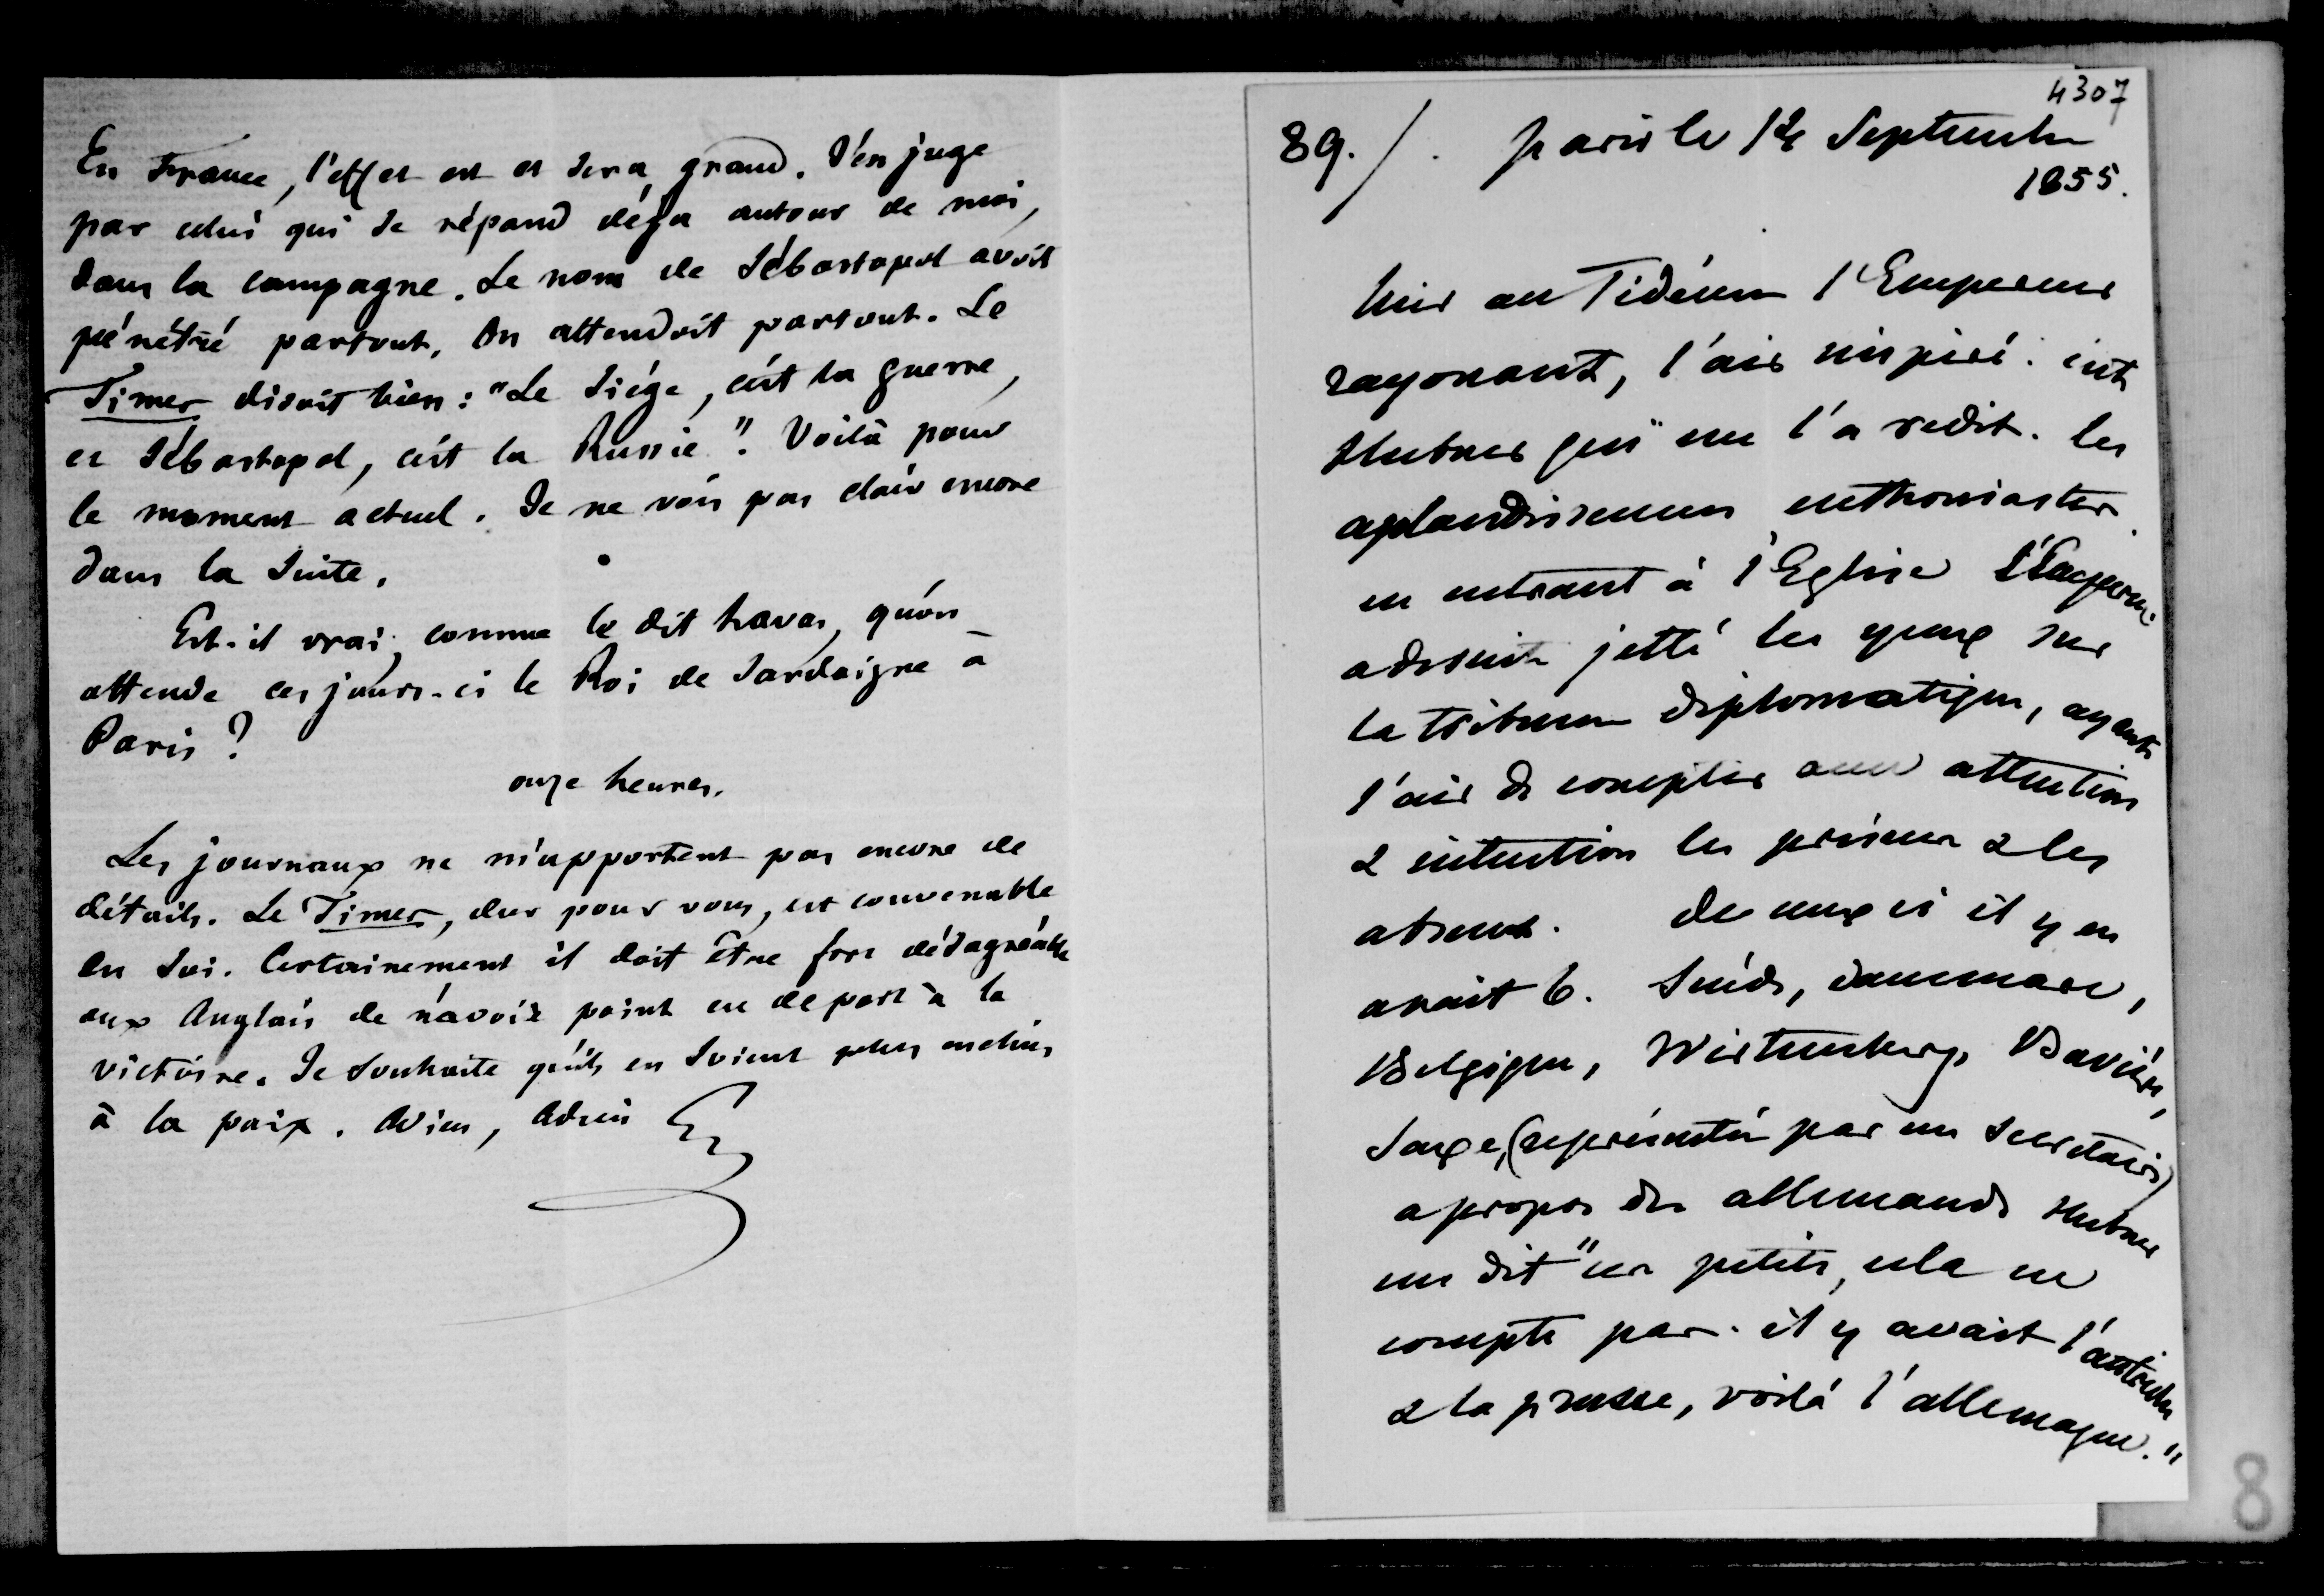 En France, l'effet est et sera grand. J'en juge
par celui qui se répand déja autour de moi,
dans la campagne. Le nom de Sébastopol avoit
pénétré partout. On attendoit partout. Le
Times disoit bien : "Le Siége, c'est la guerre,
et Sébastopol, c'est la Russie". Voilà pour
le moment actuel. Je ne vois pas clair encore
dans la suite.
Est-il vrai, comme le dit havas, qu'on
attende ces jours-ci le Roi de Sardaigne à
Paris ?
onze heures.
Les journaux ne m'apportent pas encore de
détails. Le Times, dur pour vous, est convenable
en soi. Certainement il doit être fort désagréable
aux Anglais de n'avoir point eu de part à la
victoire. Je souhaite qu'ils en soient plus enclins
à la paix. Adieu, Adieu
4307
89./. paris le 14 Septembre
1855.
hier au Tédéum l'Empereur
rayonant, l'air inspiré. c'est
Hubner qui me l'a redit. les
aplaudissemens enthousiastes.
en entrant à l'Eglise l'Empereur
a de suite jetté les yeux sur
la tribune diplomatique, ayant
l'air de compter avec attention
& intention les présens & les
absens. de ceux ci il y en
avait 6. Suéde, Dannemarc,
Belgique, Wirtemberg, Bavière,
Saxe, (représentée par un secrétaire)
a propos des allemands Hubner
me dit "ces petits, cela ne
compte pas. il y avait l'autriche
& la prusse, voilà l'allemagne."
8